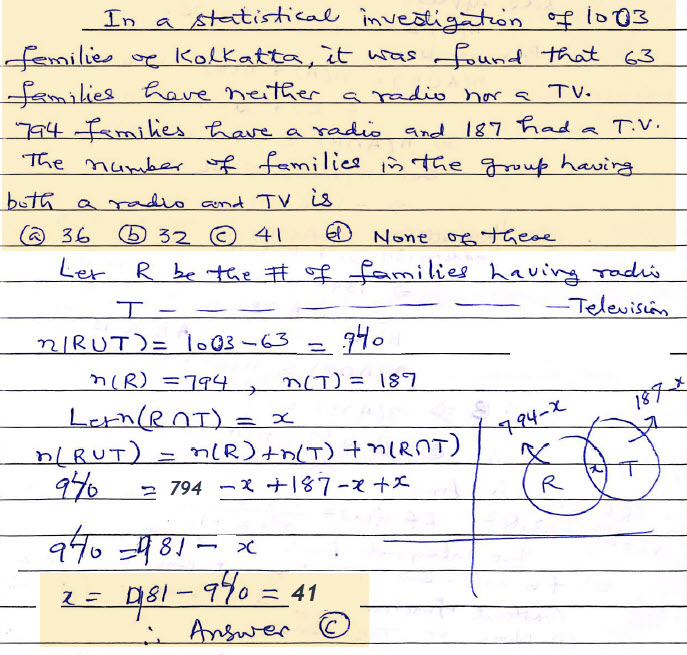 In a statistical investigation of 1003
families of Kolkatta, it was found that 63
families have neither a radio nor a TV.
794 families have a radio and 187 had a T.V.
The number of families in the group having
both a radio and TV is
(a) 36 (b) 32 (c) 41 (d) None of these
Let R be the # of families having radio
T — — — — — — — — Television
n(RUT) = 1003 - 63 = 940
n(R) = 794, n(T) = 187
Let n(R∩T) = x
n(RUT) = n(R) + n(T) + n(R∩T)
940 = 794 - x + 187 - x + x
940 = 981 - x
x = 981 - 940 = 41
∴ Answer (C)
794-x
187-x
R
x
T